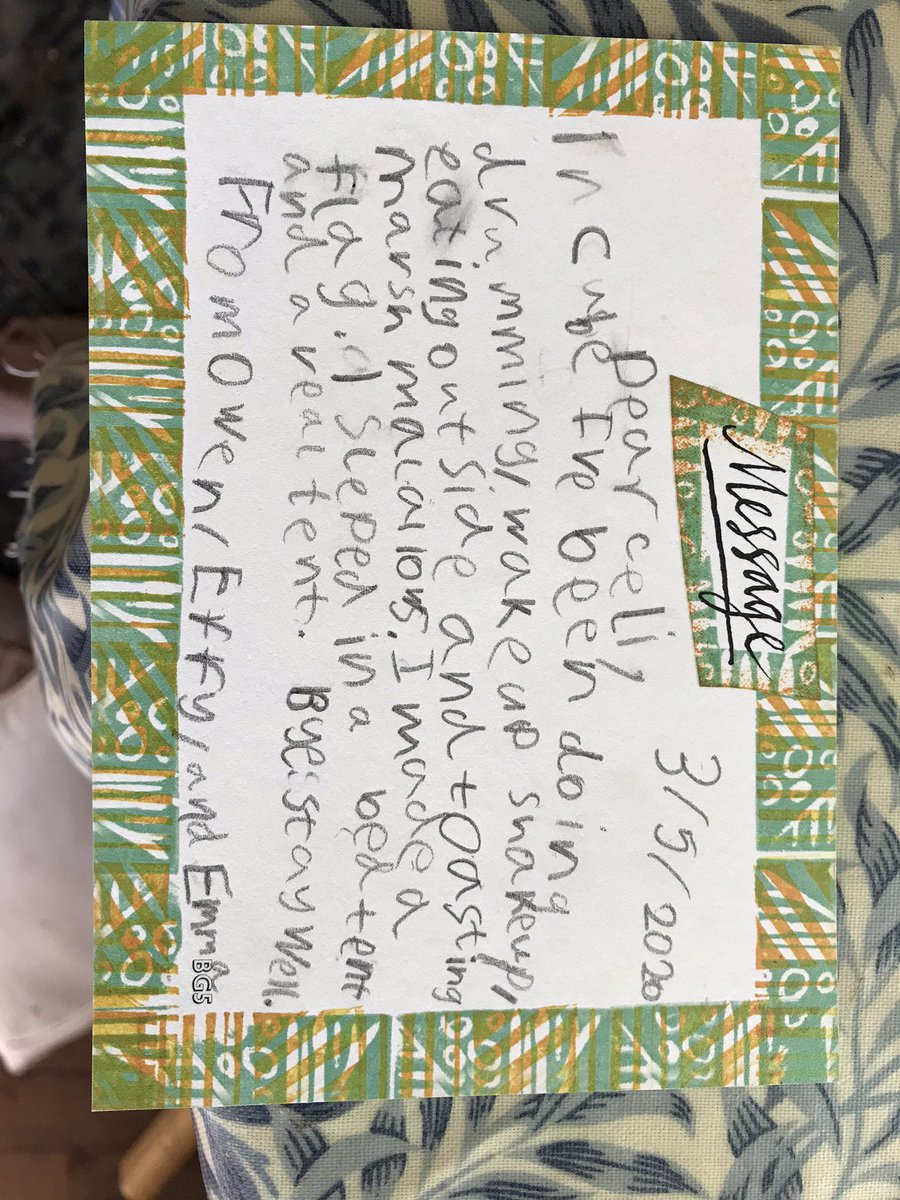 Message
3/5/2020
Dear celi,
In cube I've been doing
drumming, wake up shakeup,
eating outside and toasting
marsh malaious. I made a
flag. I sleeped in a bed tent
and a real tent. Bye. Stay well.
From Owen, Effy, and Emma
BG5